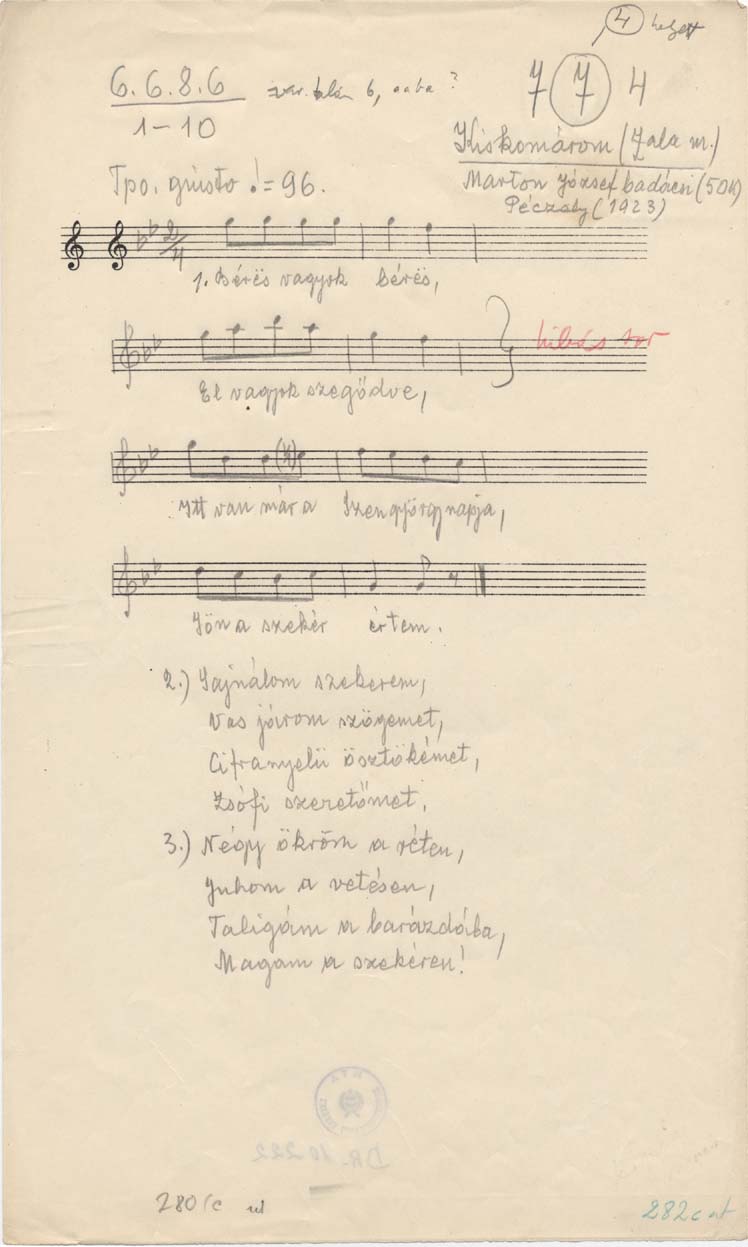 4 helyett
6.6.8.6
7 7 4
1-10
Kiskomárom (Zala m.)
Tpo. giusto = 96.
Marton József badácsi (50 é)
Péczely (1923)
2/4
1. Bérës vagyok bérës,
hibás sor
El vagyok szegődve,
Itt van már a Szengyörgynapja,
Jön a szekér értem.
2.) Sajnálom szekerem,
Vas járom szögemet,
Cifranyelű ösztökémet,
Zsófi szeretőmet.
3.) Négy ökröm a réten,
Juhom a vetésen,
Taligám a barázdába,
Magam a szekéren!
DR. 10.222
280/c
282c at